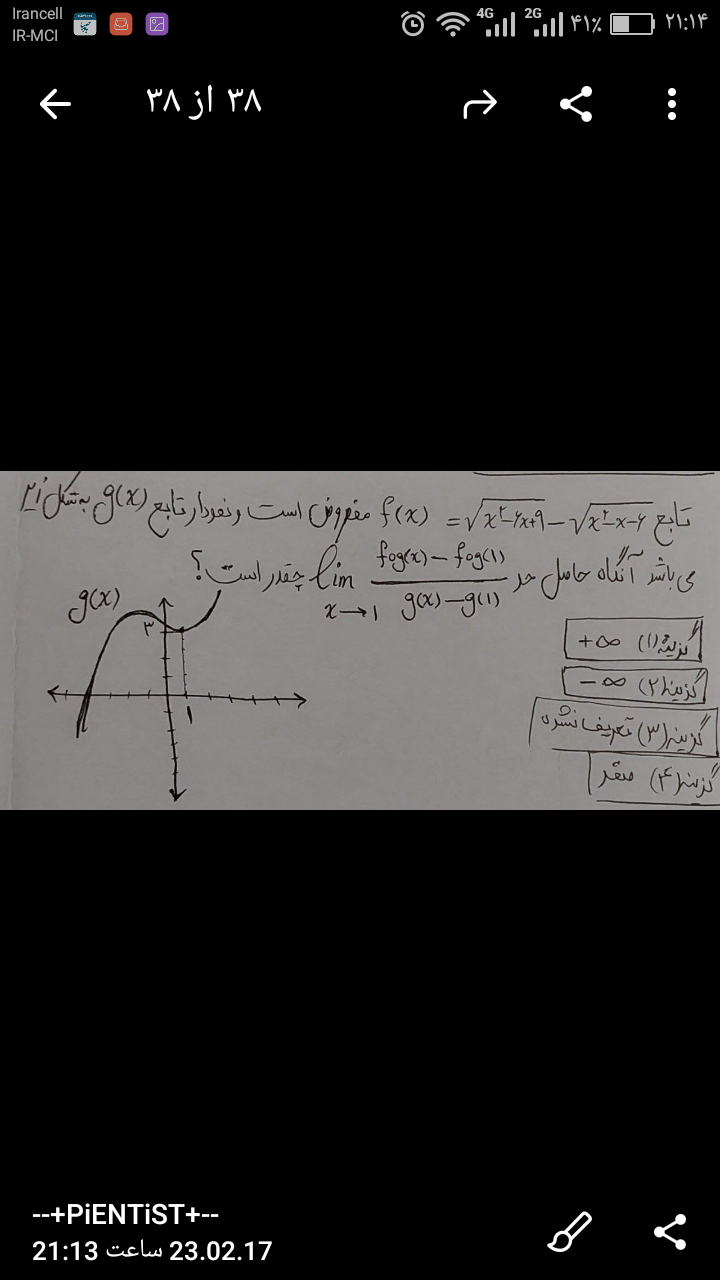 Irancell
IR-MCI
4G 2G ۴۱٪ ۲۱:۱۴
۳۸ از ۳۸
تابع f(x) = √x²-6x+9 - √x²-x-6 مفروض است و نمودار تابع g(x) به شکل
می باشد آنگاه حاصل حد lim x→1 fog(x) - fog(1) / g(x) - g(1) چقدر است؟
g(x)
۳
۱
گزینه (۱) +∞
گزینه (۲) -∞
گزینه (۳) تعریف نشده
گزینه (۴) صفر
--+PiENTiST+--
23.02.17 ساعت 21:13